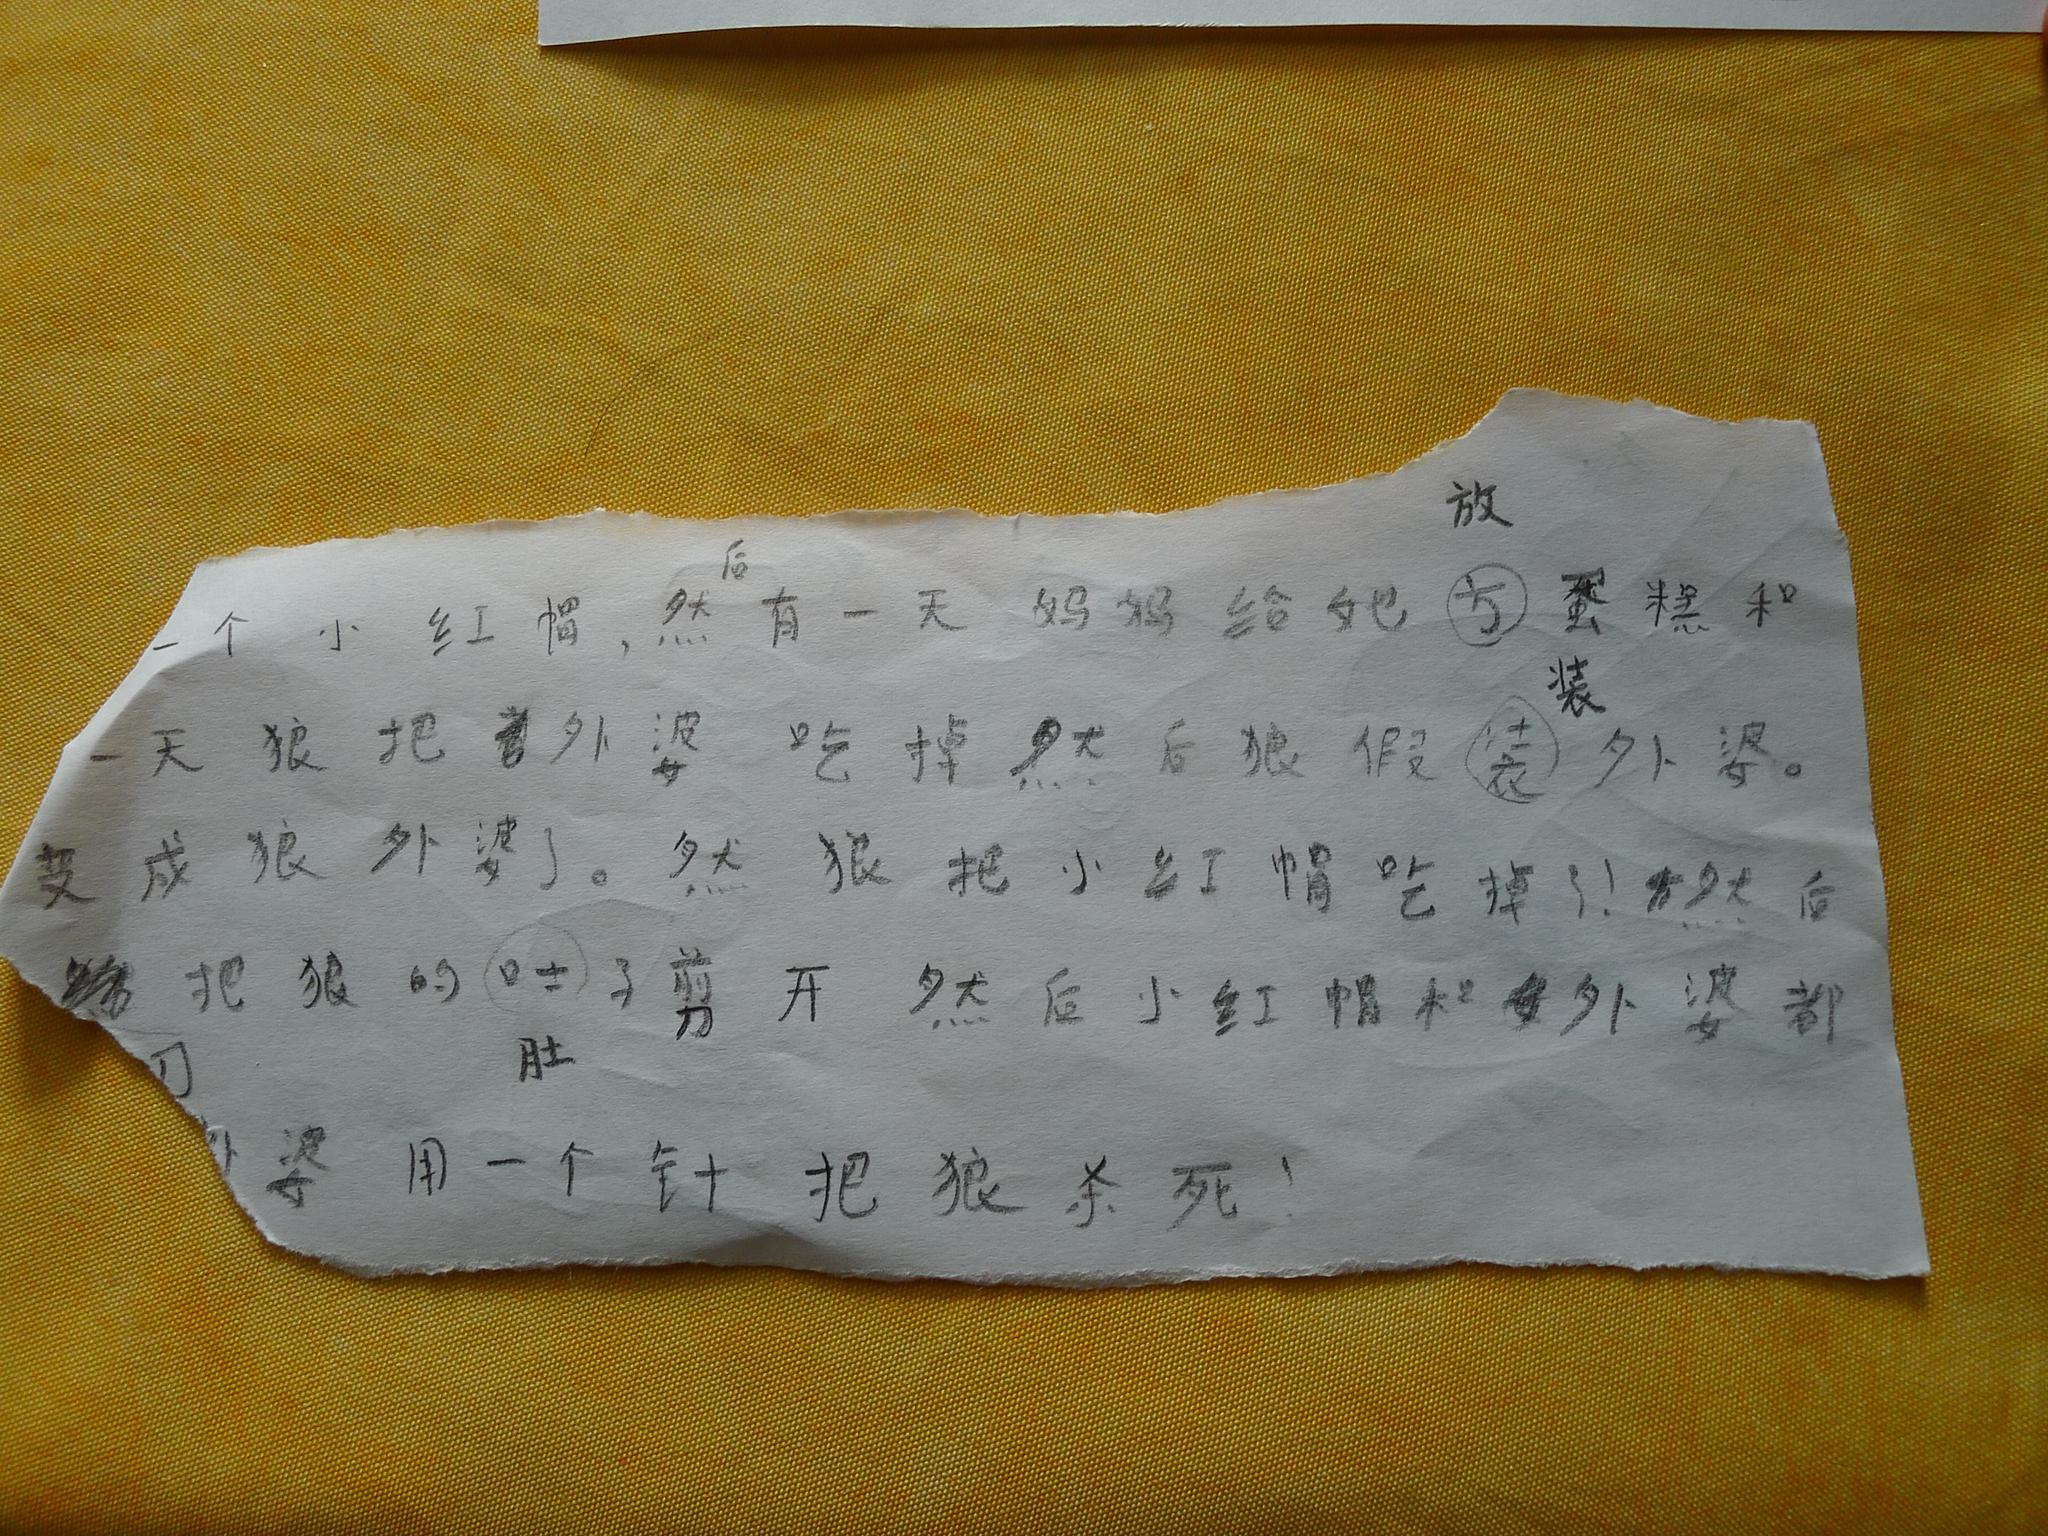 放
后
一个小红帽,然有一天妈妈给她方蛋糕和
装
一天狼把外婆吃掉然后狼假外婆。
变成狼外婆了。然狠把小红帽吃掉了!然后
把狼的吐子剪开然后小红帽和外婆都
肚
刀
外婆用一个针把狼杀死!